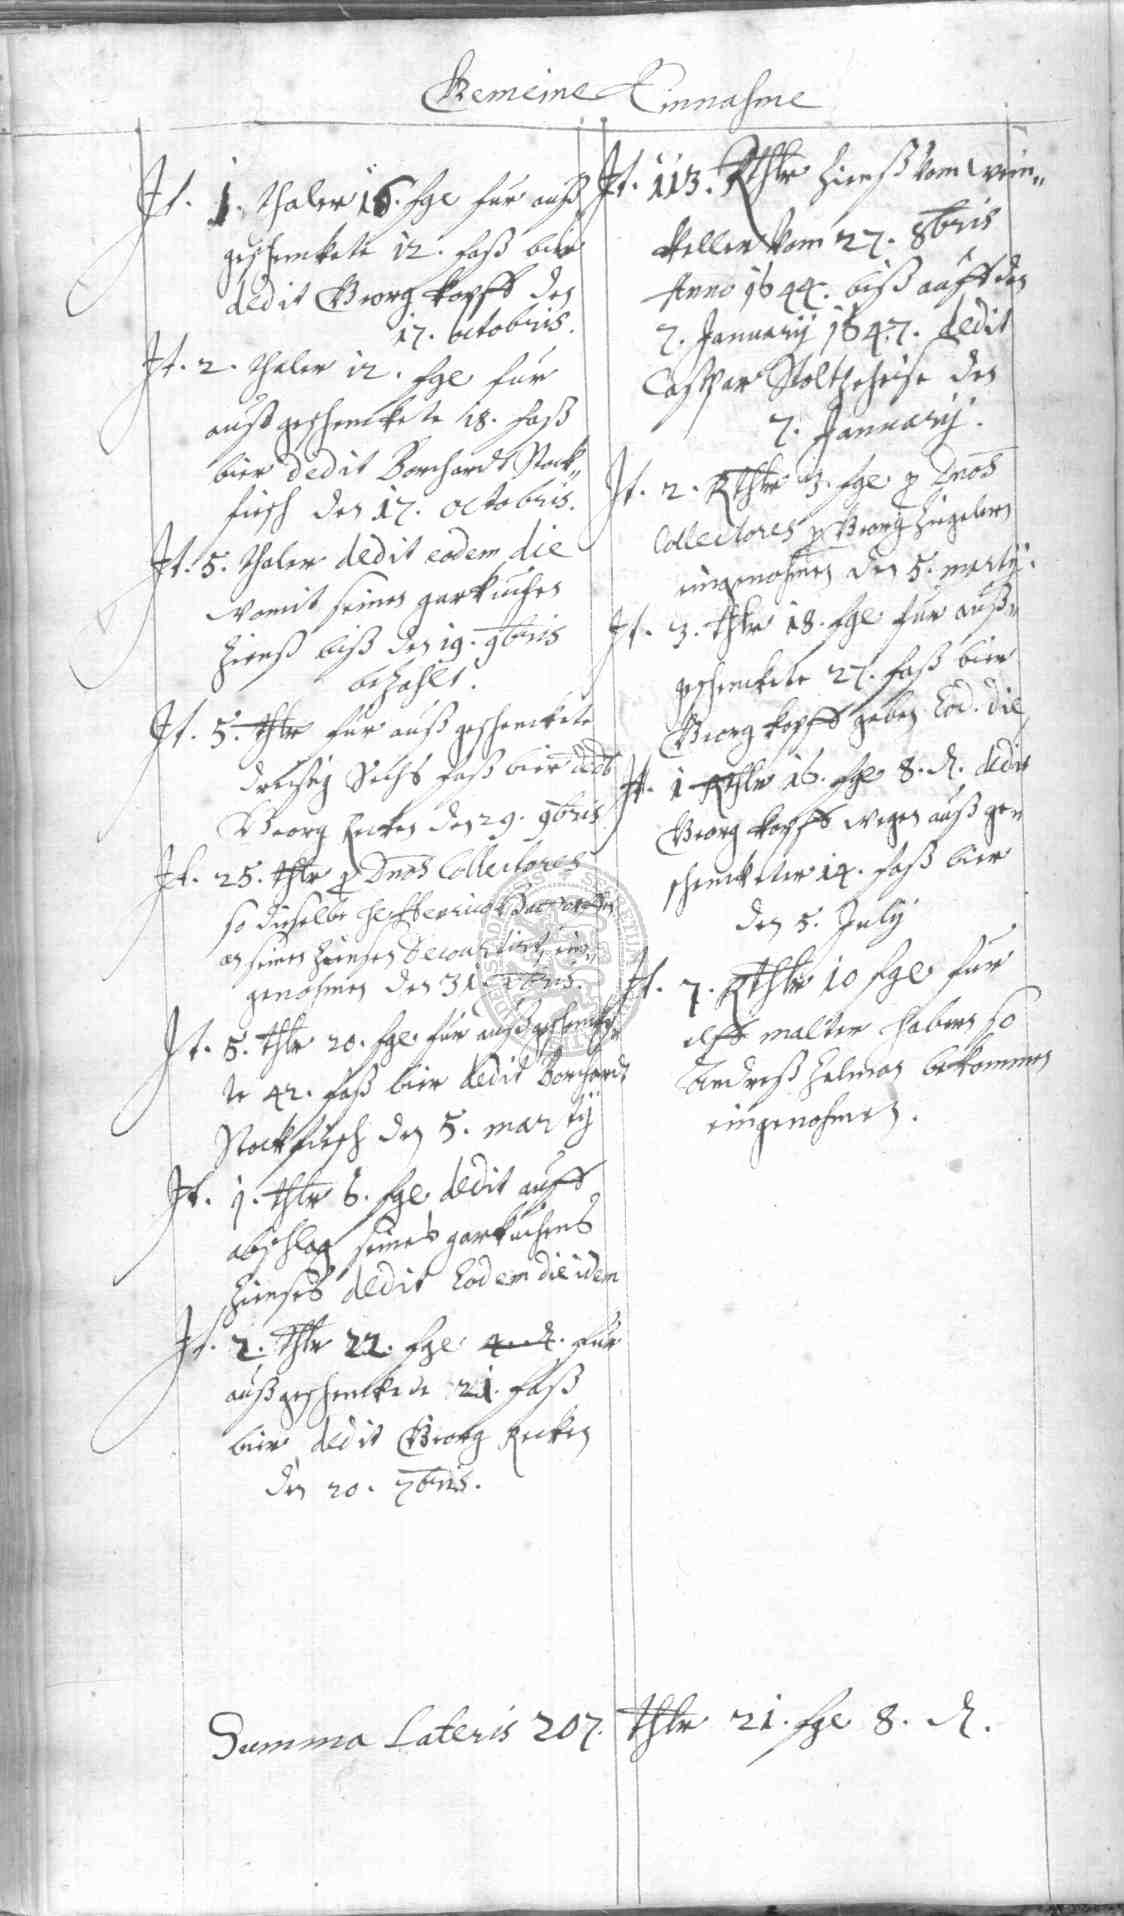 Gemeine Einnahme
It. 1. thaler 16. sgl für auß
geschenckete 12. faß bier
dedit Georg Kopff den
17. octobris.
It. 2. thaler 12. sgl für
auß geschenckete 18. faß
bier dedit Borchardt Stock„
fisch den 17. octobris.
It. 5. thaler dedit eodem die
womit seinen garkuchen
Zienß biß den 19. 9bris
bezahlt.
It. 5. thlr für auß geschenckete
dreißig Sechs faß bier dedit
Georg Recken den 29. 9bris
It. 25. thlr p Dnos Collectores
so dieselbe
an seinen Ziensen decourtirt, ein„
genohmen den 31. Xbris.
It. 5. thlr 20. sgl für außgeschencke„
te 42. faß bier dedit Borchardt
Stockfisch den 5. martij
It. 1. thlr 6. sgl dedit auff
abschlag seines garkuchens
Zienses dedit Eodem die idem
It. 2. thlr 22. sgl 4. d. für
außgeschenckede 21. faß
bier dedit Georg Recken
den 20. 7bris.
It. 113. Rthlr Zienß vom wein„
keller vom 27. 8bris
Anno 1644. biß auff den
7. Januarij 1647. dedit
Caspar Stoltzeheise den
7. Januarij.
It. 2. Rthlr 3. sgl p Dnos
Collectores p Georg Ziegelern
eingenohmen den 5. martij.
It. 3. thlr 18. sgl für auß„
geschenckete 27. faß bier
Georg Kopff geben Eod. die
It. 1 Rthlr 16. sgl 8. d. dedit
Georg Kopff wegen auß ge„
schenckter 14. faß bier
den 5. July
It. 7. Rthlr 10 sgl für
elff malter habern so
Andreß Helmar bekommen
eingenohmen.
Summa Lateris 207. thlr 21. sgl 8. d.